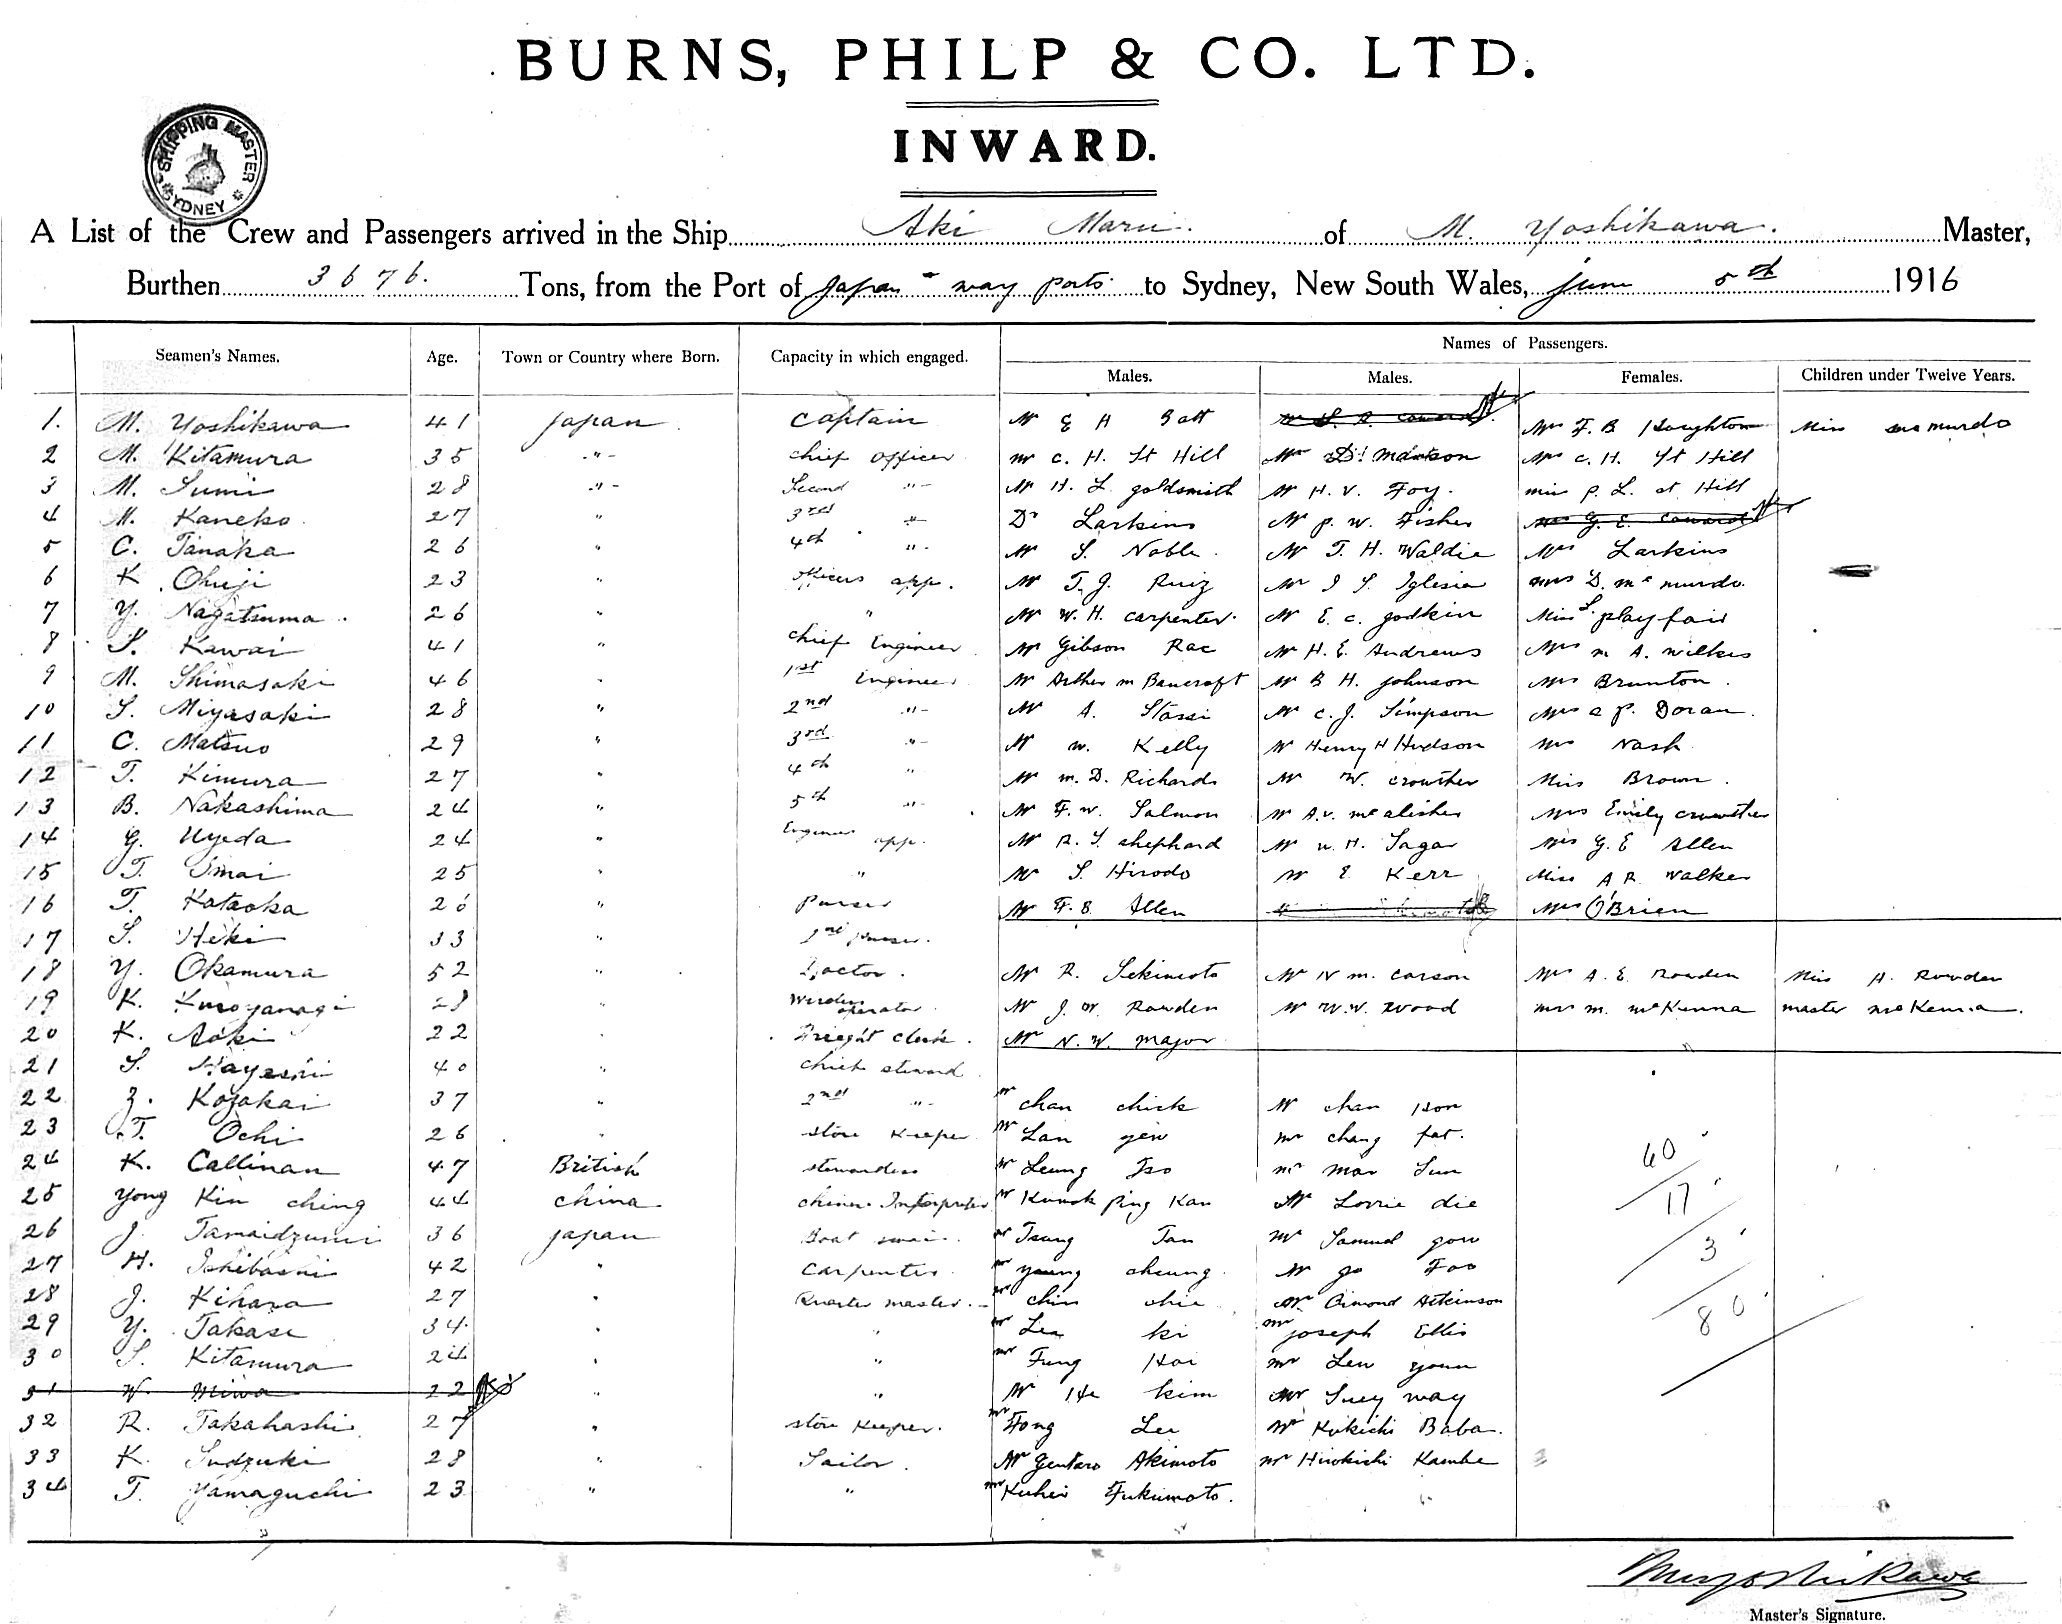 BURNS, PHILP & CO. LTD.
INWARD.
SHIPPING MASTER SYDNEY
A List of the Crew and Passengers arrived in the Ship Aki Maru. of M. Yoshikawa. Master,
Burthen 3676. Tons, from the Port of Japan & way ports to Sydney, New South Wales, June 5th 1916
Names of Passengers.
Seamen's Names. Age. Town or Country where Born. Capacity in which engaged. Males. Males. Females. Children under Twelve Years.
1. M. Yoshikawa 41 Japan Captain Mr E H Batt Mrs F. B Houghton Miss McMurdo
2 M. Kitamura 35 -"- chief officer Mr C. H. St Hill Mr D. Mrs C. H. St Hill
3 M. Sumi 28 -"- Second "- Mr H. L. goldsmith Mr H. V. Foy. Miss P. L. St Hill
4 M. Kaneko 27 " 3rd "- Dr Larkins Mr P. W. Fisher
5 C. Tanaka 26 " 4th "- Mr S. Noble. Mr T. H. Waldie Mrs Larkins
6 K. Ohuji 23 " officers app. Mr T. J. Ruiz Mr J S. Iglesia Mrs D. McMurdo.
7 Y. Nagatsuma. 26 " " Mr W. H. Carpenter. Mr E. C. godkin Miss S. playfair
8 S. Kawai 41 " chief Engineer Mr Gibson Rae Mr H. E. Andrews Mrs M A. Wilkes
9 M. Shimasaki 46 " 1st Engineer Mr Arther M Bancroft Mr B H. Johnson Mrs Brunton.
10 S. Miyasaki 28 " 2nd "- Mr A. Stassi Mr C. J. Simpson Mrs P. Doran.
11 C. Matsuo 29 " 3rd "- Mr W. Kelly Mr Henry H Hudson Mrs Nash
12 T. Kimura 27 " 4th " Mr M. D. Richards Mr W. Crowther Miss Brown.
13 B. Nakashima 24 " 5th "- Mr F. W. Salmon Mr A. V. McAlister Mrs Emily Crowther
14 G. Uyeda 24 " Engineer app. Mr R. S. shephard Mr W. H. Sagar Mrs G. E Allen
15 T. Imai 25 " " Mr S. Hirodo Mr E Kerr Miss A. R. Walker
16 T. Kataoka 26 " Purser Mr F. B. Allen Mrs O'Brien
17 S. Heki 33 " Purser.
18 Y. Okamura 52 " Doctor. Mr R. Sekimoto Mr N M. Carson Mrs A. E. Rowden Miss A. Rowden
19 K. Kuroyanagi 28 " Wireless operator. Mr J. W. Rowden Mr W. W. Wood Mrs M. McKenna Master McKenna.
20 K. Aoki 22 " Freight Clerk. Mr N. W. Major
21 S. Hayashi 40 " Chief steward
22 Z. Kosakai 37 " 2nd "- Mr Chan Chick Mr Chan Hon
23 T. Ochi 26 " store Keeper Mr Lan yew Mr Chang fat.
24 K. Callinan 47 British stewardess Mr Leung Tso Mr Mar Sun
25 Yong Kin Ching 44 China Chinese Interpreter Mr Kwock Ping Kan Mr Lorrie die
26 J. Tamaidzumi 36 Japan Boat swain. Mr Tsang Tan Mr Samuel gow
27 H. Ishibashi 42 " Carpenter. Mr young cheung. Mr go Foo
28 J. Kihara 27 " Quarter master. Mr Chin Chie Mr Atkinson
29 Y. Takase 34 " " Mr Lee ki Mr Joseph Ellis
30 S. Kitamura 24 " " Mr Fung Hoi Mr Lew youn
31 W. Miwa 22 " " Mr He kim Mr Suey way
32 R. Takahashi 27 " store Keeper. Mr Fong Lee Mr Kukichi Baba.
33 K. Sudzuki 28 " Sailor. Mr Gentaro Akimoto Mr Hirokichi Kambe
34 T. Yamaguchi 23 " " Mr Kuhei Fukumoto.
60
17
3
80
M. Yoshikawa
Master's Signature.